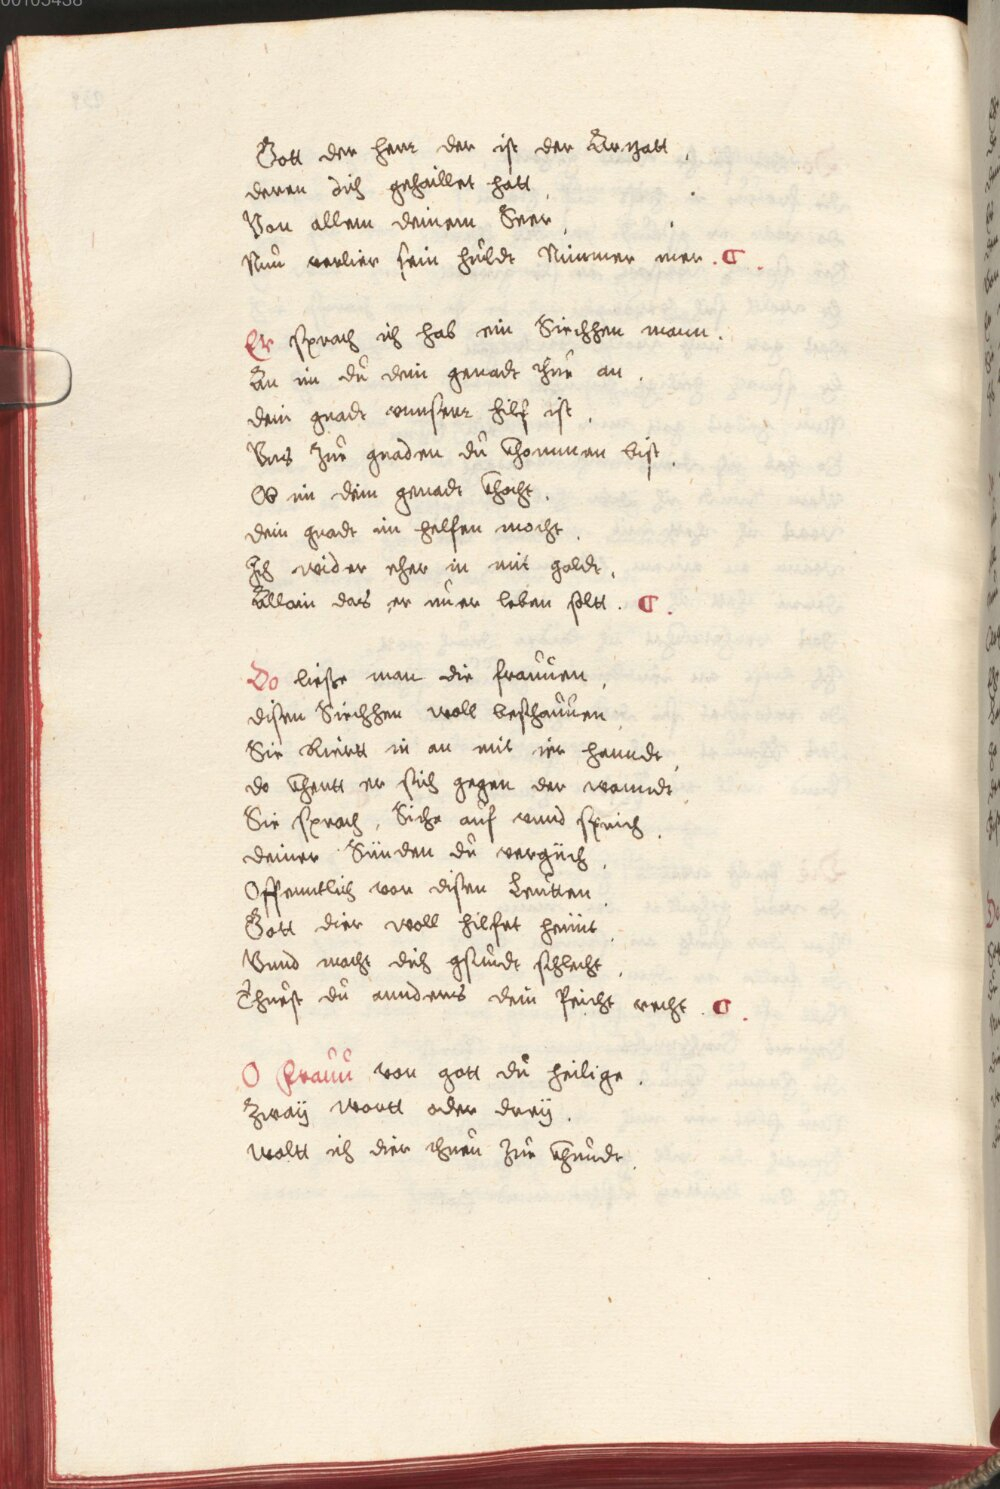 Gott der herr der ist der Artzatt,
deren dich gehaillet hatt,
Von allem deinem Seer,
Nuu verlier sein huldt Nimmer mer. ¶.
Er sprach ich hab ein Siechhen mann.
An im du dein genadt thue an,
dein gnadt vnnserr hilf ist,
Vns zue gnaden du khommen bist,
Ob im dein genadt khocht,
dein gnadt im helfen mocht,
Ich wider eher in mit goldt,
Allain das er nuer leben soltt. ¶.
Do liesse man die frauuen,
disen Siechhen woll beschauuen,
Sie Riertt in an mit ier hanndt,
do khertt er sich gegen der wanndt,
Sie sprach, Siche auf vnnd sprich,
deiner Sünden du vergüch,
Offenntlich vor disen Leutten,
Gott dier woll hilfet heüüt,
Vnnd macht dich gsundt schlecht,
Thuest du annders dein Peicht recht. ¶.
O Frauu von gott du heilige,
Zwaÿ wortt oder dreÿ,
woltt ich dier thuen zue khundt,